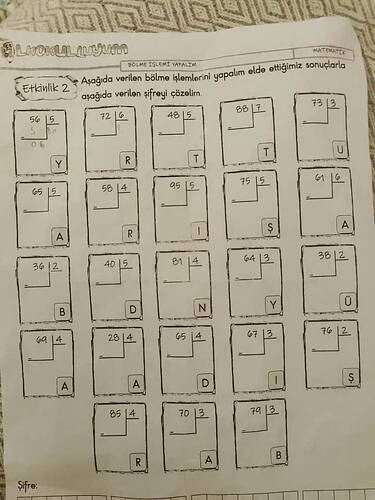 İLKOKULUYUM
MATEMATİK
BÖLME İŞLEMİ YAPALIM
Etkinlik 2
Aşağıda verilen bölme işlemlerini yapalım elde ettiğimiz sonuçlarla
aşağıda verilen şifreyi çözelim.
56 5 72 6 48 5 88 7 73 3
Y R T T U
65 5 58 4 95 5 75 5 61 6
A R I Ş A
36 2 40 5 81 4 64 3 38 2
B D N Y Ü
69 4 28 4 65 4 67 3 76 2
A A D I Ş
85 4 70 3 79 3
R A B
Şifre: